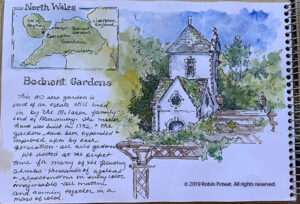 North Wales
LIVERPOOL
ENGLAND
Bodnant Gardens
This 80 acre garden is
part of an estate still lived
in by the McLaren family
Lord of Aberconwy. The manor
house was built in 1792 & the
gardens have been expanded &
improved upon by each
generation - all avid gardeners
We visited at the perfect
time for many of the flowering
shrubs - thousands of azaleas
& rhododendrons in every color
imaginable - all massed
and running together in a
mass of color.
© 2019 Robin Poteet. All rights reserved.